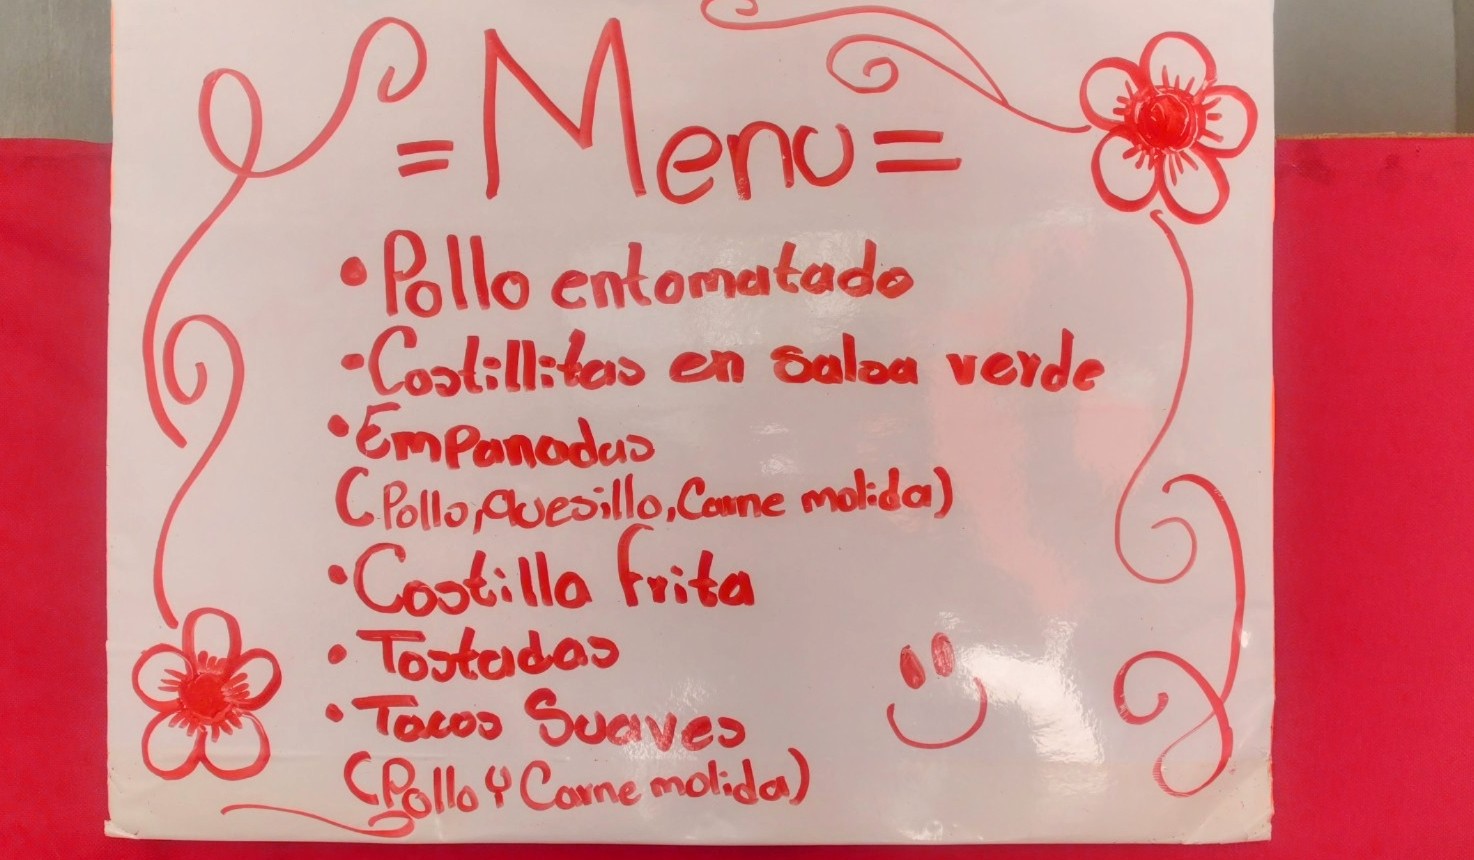 = Menu =
• Pollo entomatado
• Costillitas en salsa verde
• Empanadas
(Pollo, Quesillo, Carne molida)
• Costilla frita
• Tostadas
• Tacos Suaves
(Pollo y Carne molida)